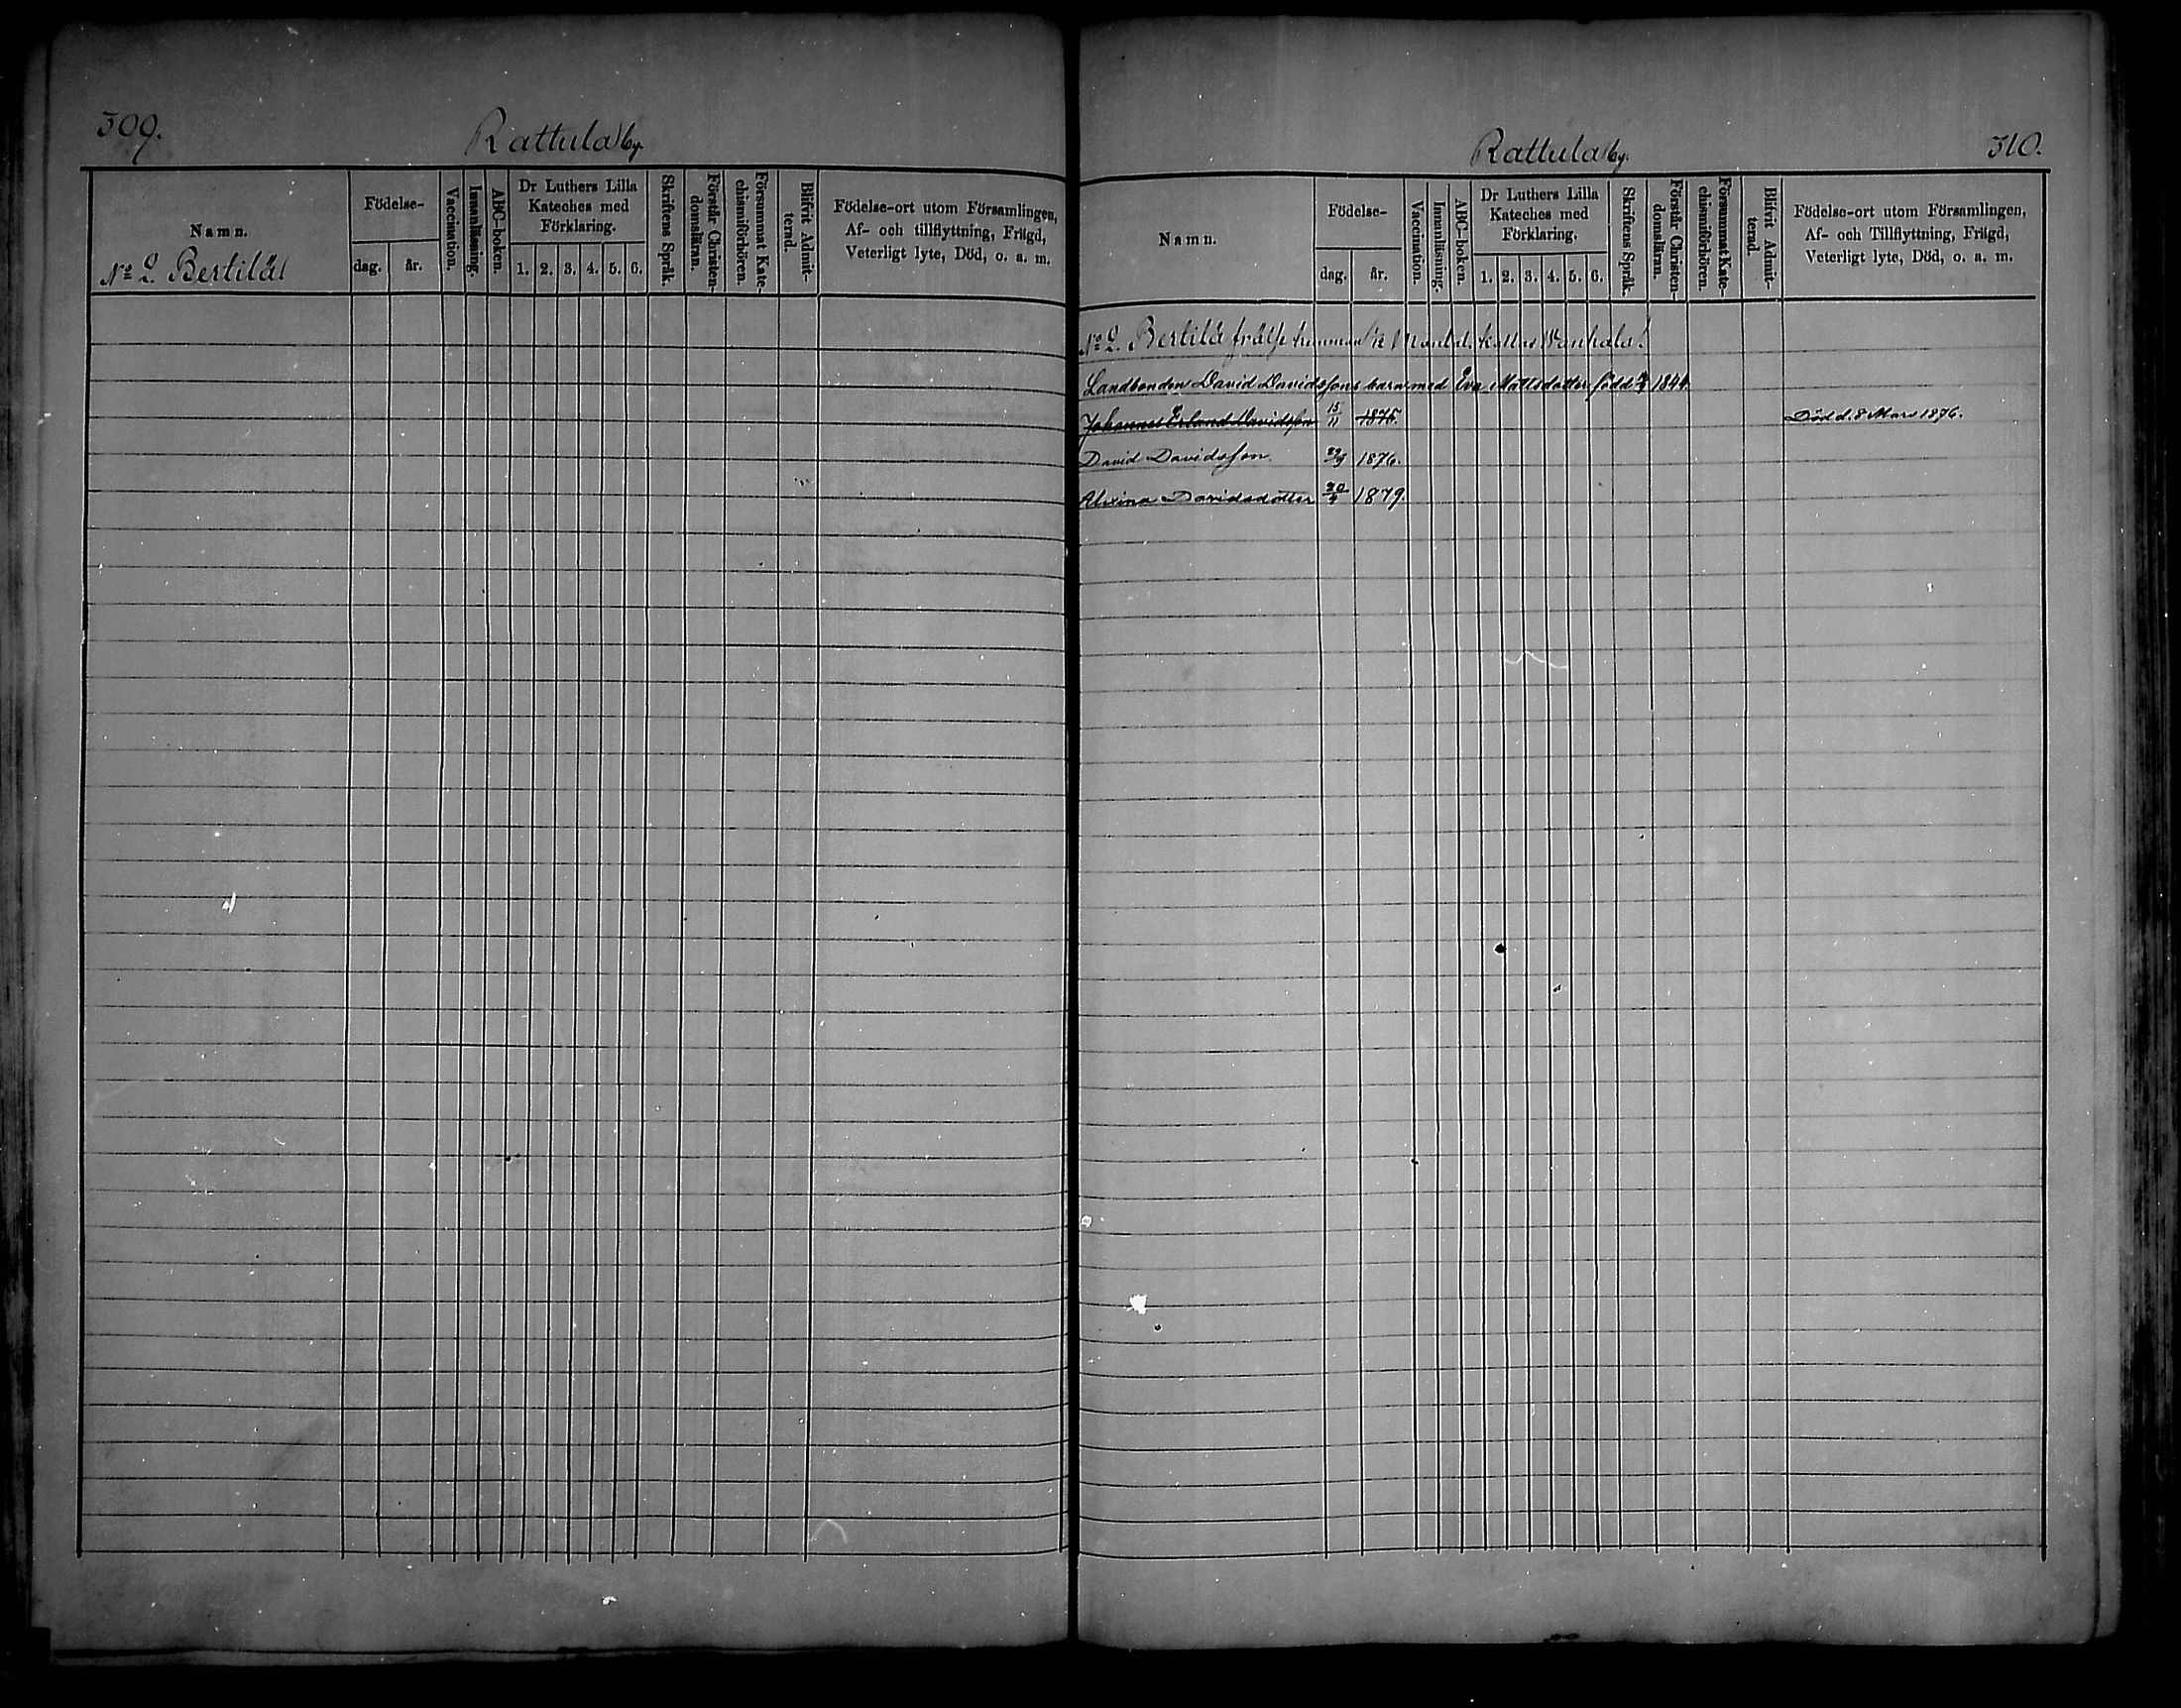 309.
Rattula by.
Namn.
Nº 2. Bertilä
Födelse-
dag.
år.
Vaccination.
Innanläsning.
ABC-boken.
Dr Luthers Lilla
Kateches med
Förklaring.
1. 2. 3. 4. 5. 6.
Skriftens Språk.
Förstår Christen-
domsläran.
Försummat Kate-
chismiförhören.
Blifvit Admit-
terad.
Födelse-ort utom Församlingen,
Af- och tillflyttning, Frägd,
Veterligt lyte, Död, o. a. m.
Rattula by.
310.
Namn.
Födelse-
dag.
år.
Vaccination.
Innanläsning.
ABC-boken.
Dr Luthers Lilla
Kateches med
Förklaring.
1. 2. 3. 4. 5. 6.
Skriftens Språk.
Förstår Christen-
domsläran.
Försummat Kate-
chismiförhören.
Blifvit Admit-
terad.
Födelse-ort utom Församlingen,
Af- och Tillflyttning, Frägd,
Veterligt lyte, Död, o. a. m.
Nº 2. Bertilä frälse hemman Mantal. kallas Wanhala.
Landbonden David Davidssons barn med Eva Mattsdotter född 1844.
Johannes Erland Davidsson 15/11 1875. Död d. 8 Mars 1876.
David Davidsson 29/9 1876.
Alexina Davidsdotter 1879.